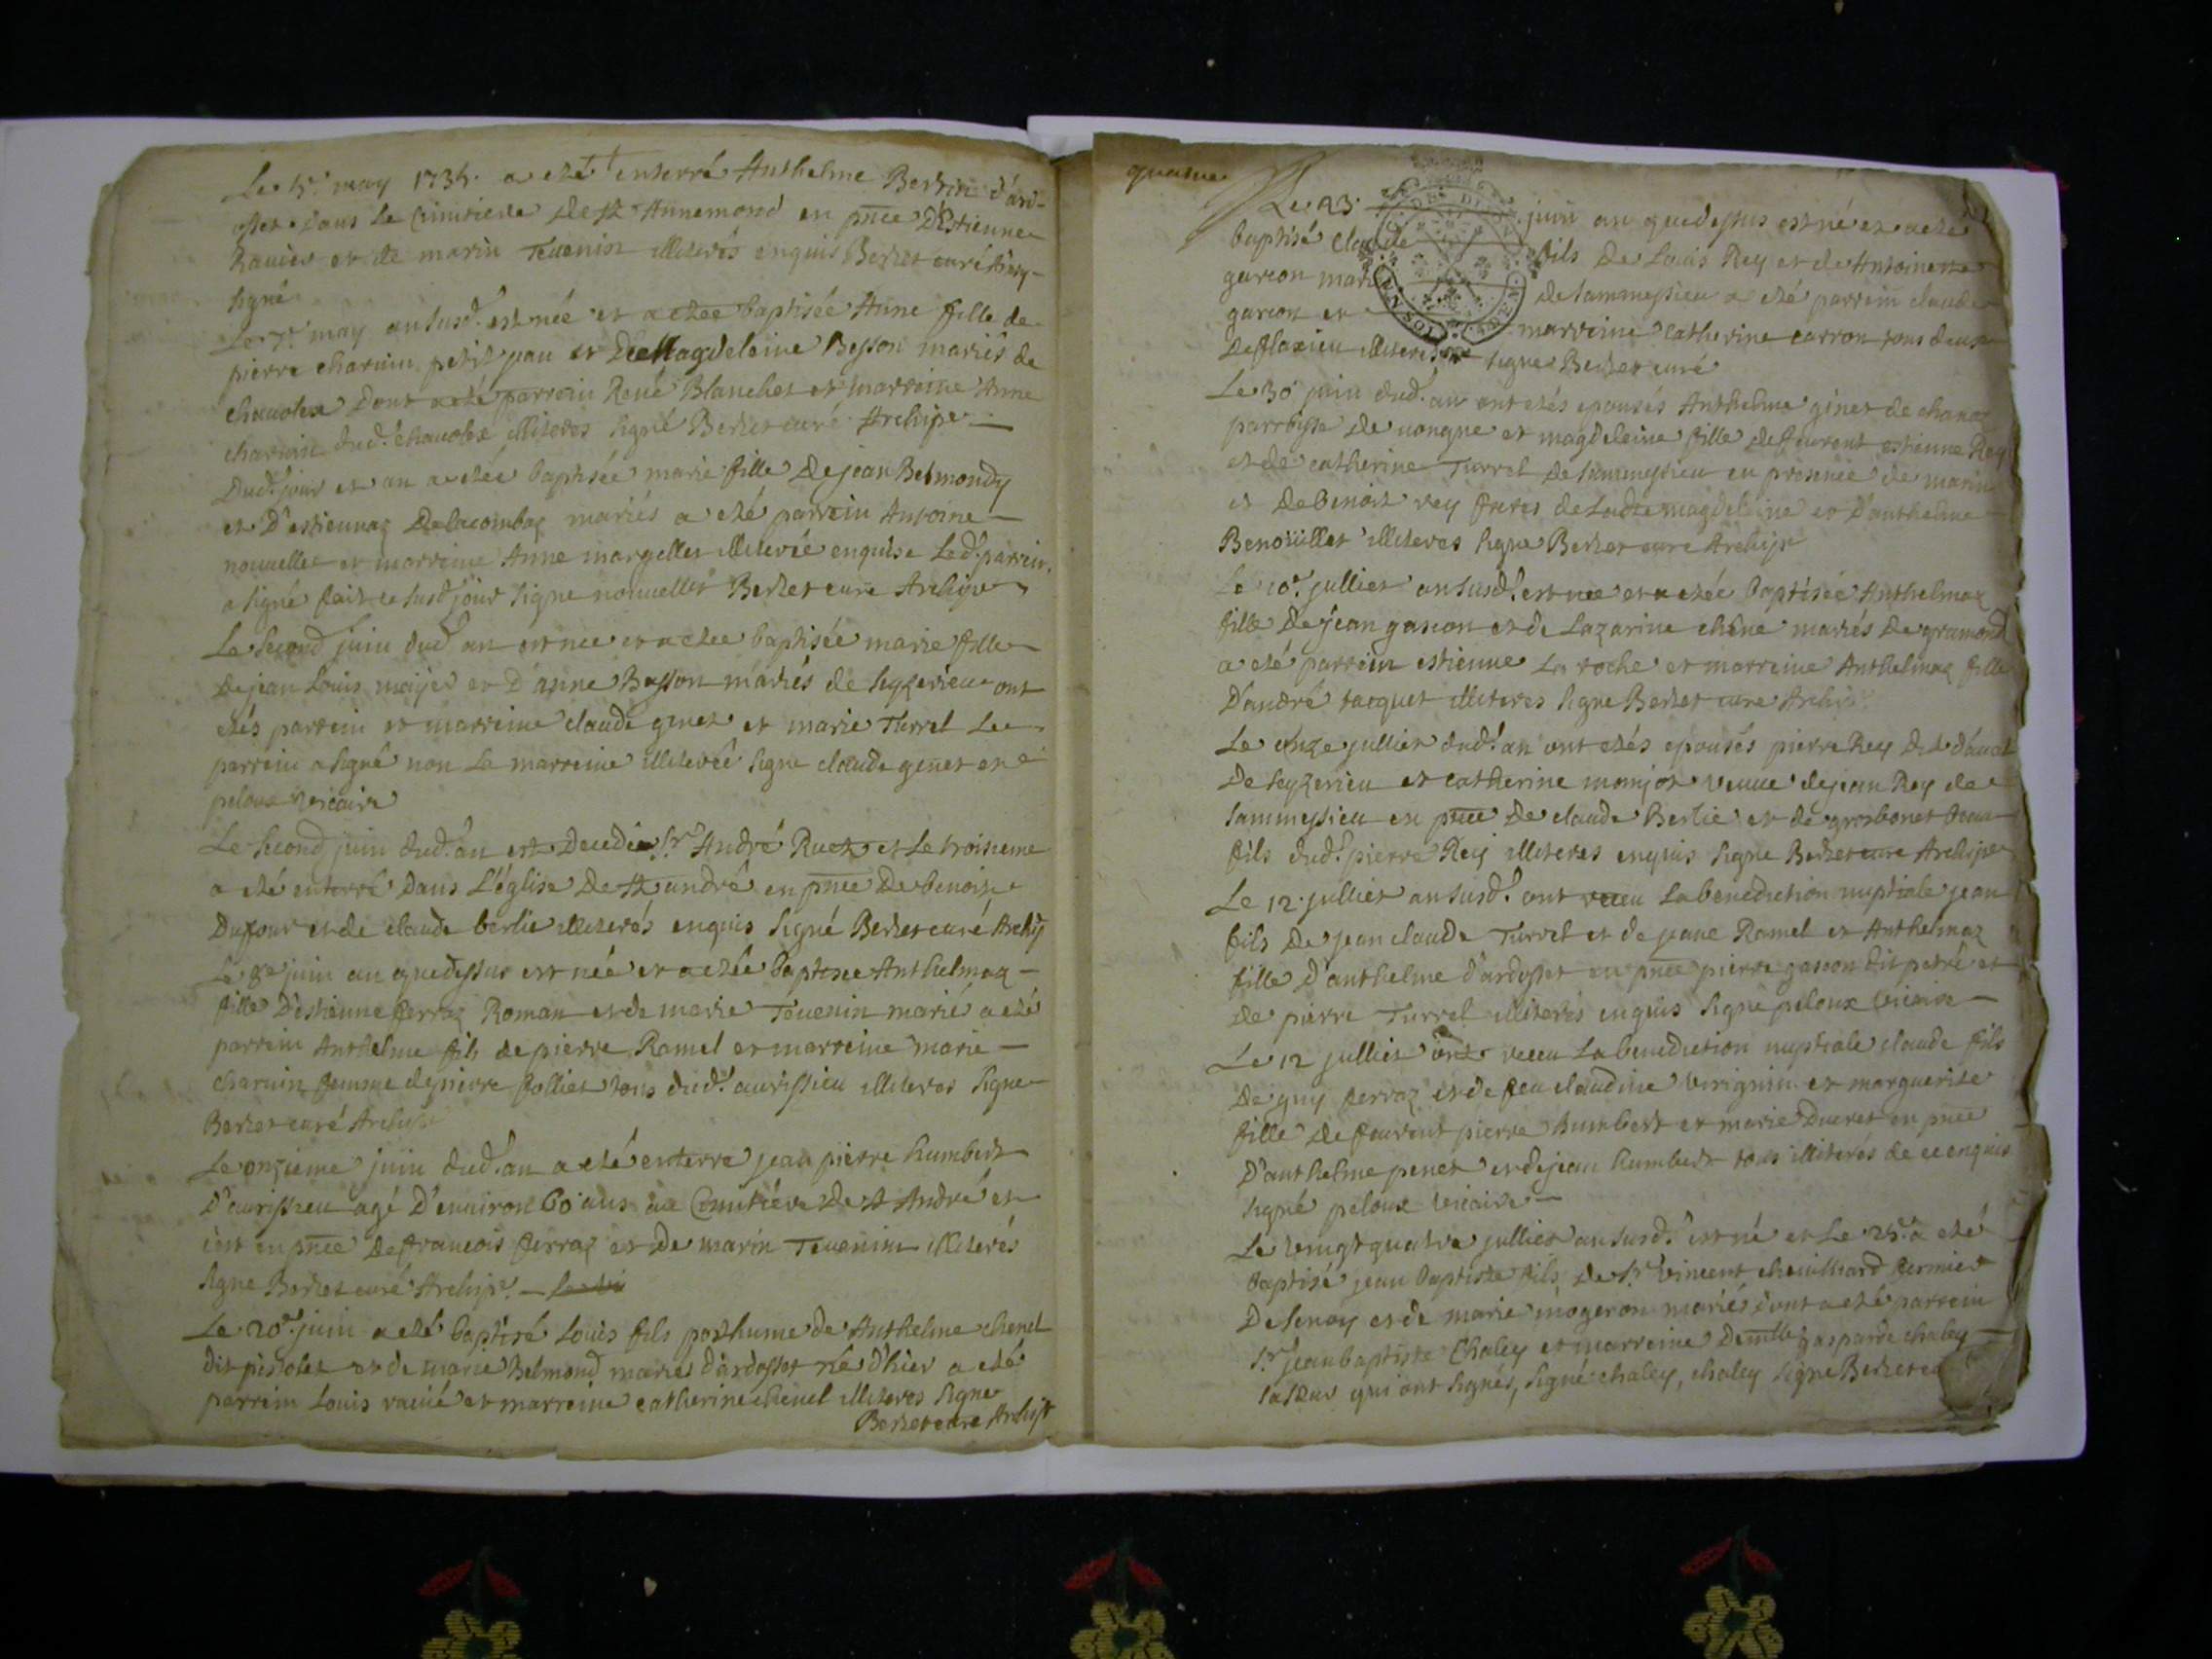 Le 5e may 1735. a eté enterré Anthelme Bertin d'ard-
osset dans le Cimitiere de st Annemond en pnce D'Estienne
Ravier et de marin Tévenin illiterés enquis Berzet curé
signé
Le 7e may an susd. est née et a etée baptisée Anne fille de
pierre charvin petit jean et De Magdeleine Besson mariés de
dont a eté parrein René Blanchet et marreine Anne
charvin dud. illiteres signé Berzet curé Archipr
Dud. jour et an a etée baptisée marie fille De jean Belmondy
et D'estiennaz Delacombaz mariés a eté parrein Antoine
nouvellet et marreine Anne margellet illiterée enquise Led. parrein
a signé fait le susd jour signe nouvellet Berzet curé Archipr
Le second juin dud an est née et a etee baptisée marie fille
De jean Louis et D'anne Basson mariés de seyzerieu ont
etés parrein et marreine claude genet et marie Turrel Le
parrein a signé non La marreine illiterée signe claude genet et
peloux vicaire
Le second juin dud. an est Decedé sr André Ruet et Le troisieme
a eté enterré Dans L'église De st andré en pnce De benoist
Dufour et de claude berlie illiterés enquis signé Berzet curé Archip
Le 8e juin an quedessus est née et a etée baptisee Anthelmaz
fille D'estienne ferraz Roman et de marie Tévenin marié a eté
parrein Anthelme fils de pierre Ramel et marreine marie
charvin femme de pierre follier tous dud. avrissieu illiteres signe
Berzet curé Archipr
Le onzieme juin dud. an a eté enterré jean pierre humbert
D'avrissieu agé D'environ 60 ans au Cimitière De st André et
en pnce De francois ferraz et De marin Tévenin illiterés
signe Berzet curé Archipr.
Le 20e juin a eté baptisé Louis fils posthume de Anthelme chenel
dit pistolet et de marie Belmond mariés d'ardosset né d'hier a eté
parrein Louis ravié et marreine catherine chenel illiteres signe
Berzet curé Archipr
quatre
Le 23 juin an quedessus est né et a eté
baptisé claude fils De Louis Rey et de Antoinette
garcon mariés de sammeysieu a eté parrein claude
garcon et marreine catherine carron tous deux
De flaxieu illiteres signe Berzet curé
Le 30 juin dud. an ont etés epousés Anthelme ginet de chanaz
parroisse De vongne et magdeleine fille De feurent estienne Rey
et de catherine Turrel De sammeysieu en presence de marin
et De benoist rey freres de Ladte magdeleine et D'anthelme
Benoüillet illiteres signe Berzet curé Archipr
Le 10e jullier an susd. est nee et a etée baptisée Anthelmaz
fille De jean gascon et de Lazarine chêne mariés De gramond
a eté parrein estienne La roche et marreine Anthelmaz fille
D'andré tacquet illiteres signe Berzet cure Archipr
Le onze jullier dud. an ont etés epousés pierre Rey
De seyzerieu et catherine monjot veuve de jean Rey de
sammeysieu en pnce De claude Berlie et de grosbonet
fils dud. pierre Rey illiteres enquis signe Berzet cure Archipr
Le 12 jullier an susd. ont receu La benediction nuptiale jean
fils De jean claude Turrel et de jeane Ramel et Anthelmaz
fille D'anthelme d'ardosset en pnce pierre gascon dit petré et
De pierre Turrel illiterés enquis signe peloux vicaire
Le 12 jullier ont receu La benediction nuptiale claude fils
De guy ferraz et de feu claudine virignin et marguerite
fille De feurent pierre humbert et marie Ducret en pnce
D'anthelme penet et de jean humbert tous illiterés de ce enquis
signé peloux vicaire
Le vingt quatre jullier an susd. est né et Le 25e a eté
baptisé jean baptiste fils De sr vincent chevilliard fermier
De senoy et de marie mogeron mariés dont a eté parrein
sr jean baptiste Chaley et marreine Demlle gasparde chaley
sa sœur qui ont signés, signé chaley, chaley signe Berzet